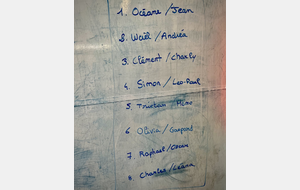 1. Océane / Jean
2. Waël / Andréa
3. Clément / Charly
4. Simon / Leo-Paul
5. Tristan
6 Olivia / Gaspard
7. Raphaël /
8 Charles /